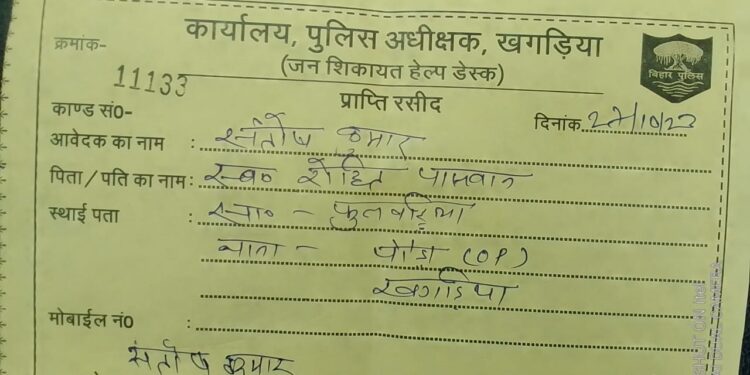 कार्यालय, पुलिस अधीक्षक, खगड़िया
(जन शिकायत हेल्प डेस्क)
क्रमांक-
11133
प्राप्ति रसीद
बिहार पुलिस
काण्ड सं0-
दिनांक 27/10/23
आवेदक का नाम : संतोष कुमार
पिता / पति का नाम: स्व० रोहित पासवान
स्थाई पता : सा० - फुलवड़िया
थाना - (OP)
खगड़िया
मोबाईल नं0 :
संतोष कुमार